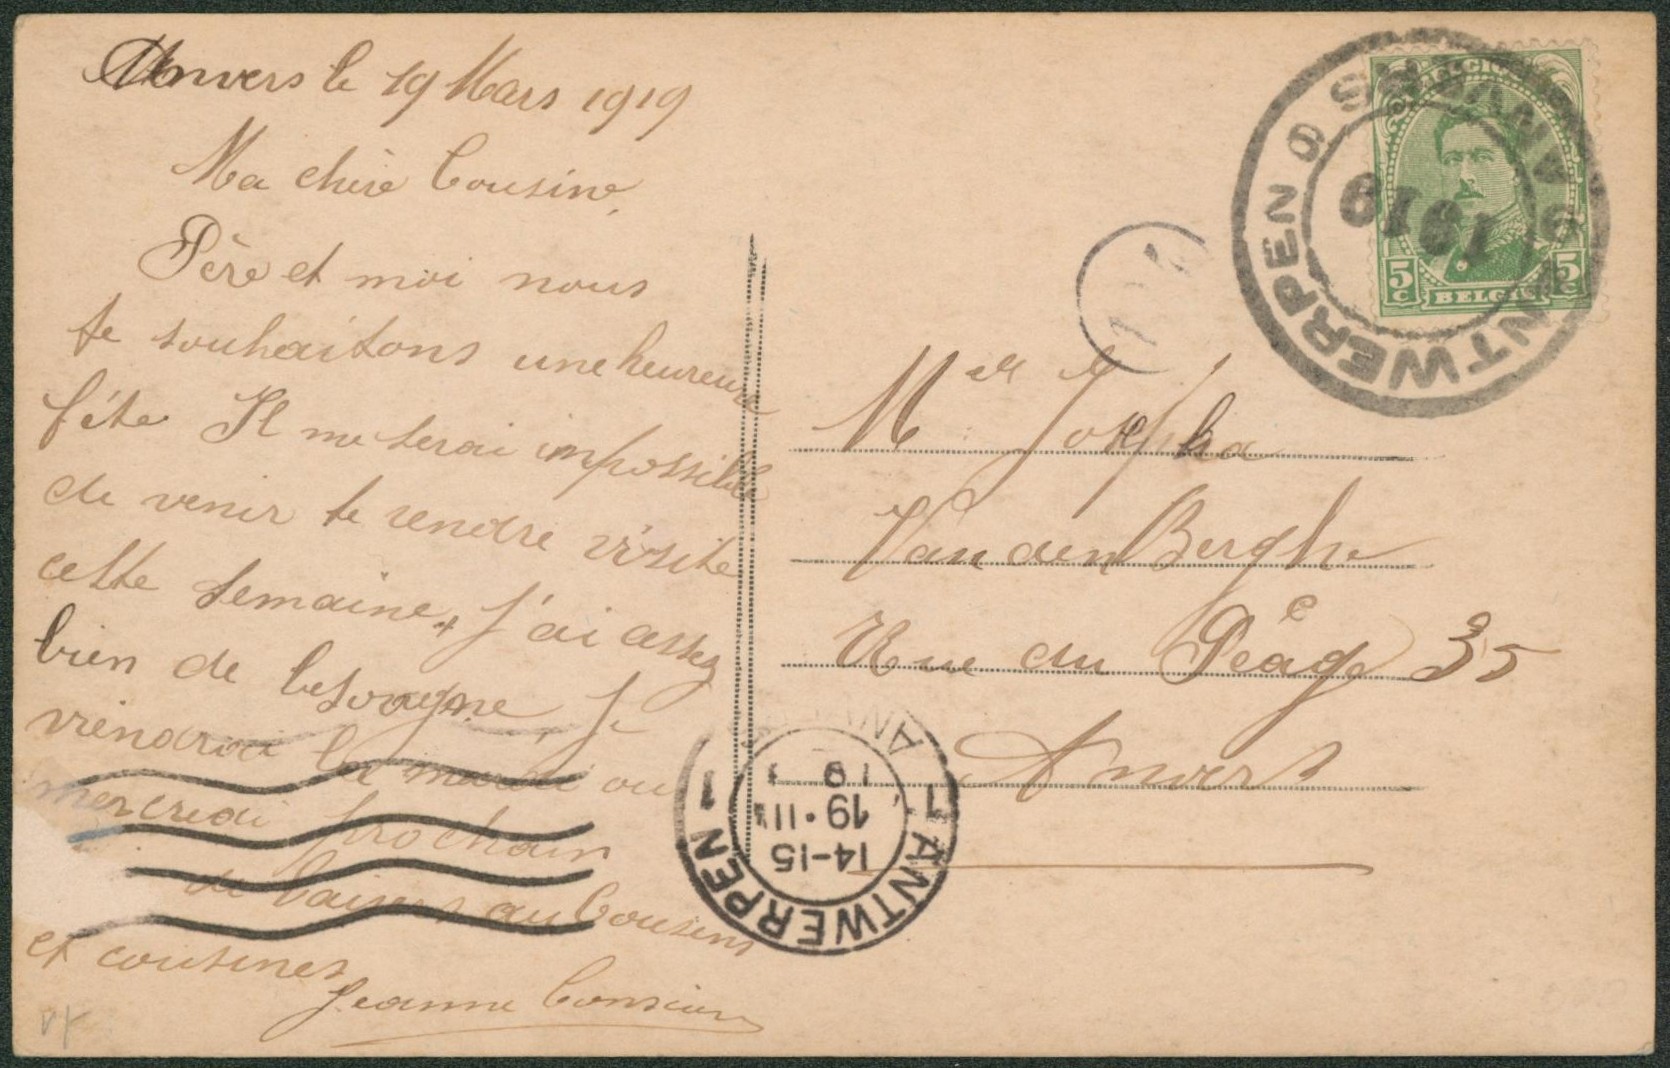 Anvers le 19 Mars 1919
Ma chère Cousine,
Père et moi nous
te souhaitons une heureuse
fête Il me serai impossible
de venir te rendre visite
cette semaine, j'ai assez
bien de besogne je
viendrai le mardi ou
mercredi prochain
de baisers au Cousins
et cousines
Jeanne
BELGIE
5 c
BELGIQUE
5 c
ANVERS 9
1919
ANTWERPEN 9
Melle Josepha
Vanden Berghe
Rue du Péage 35
Anvers
1 ANTWERPEN 1
14-15
19·III
19